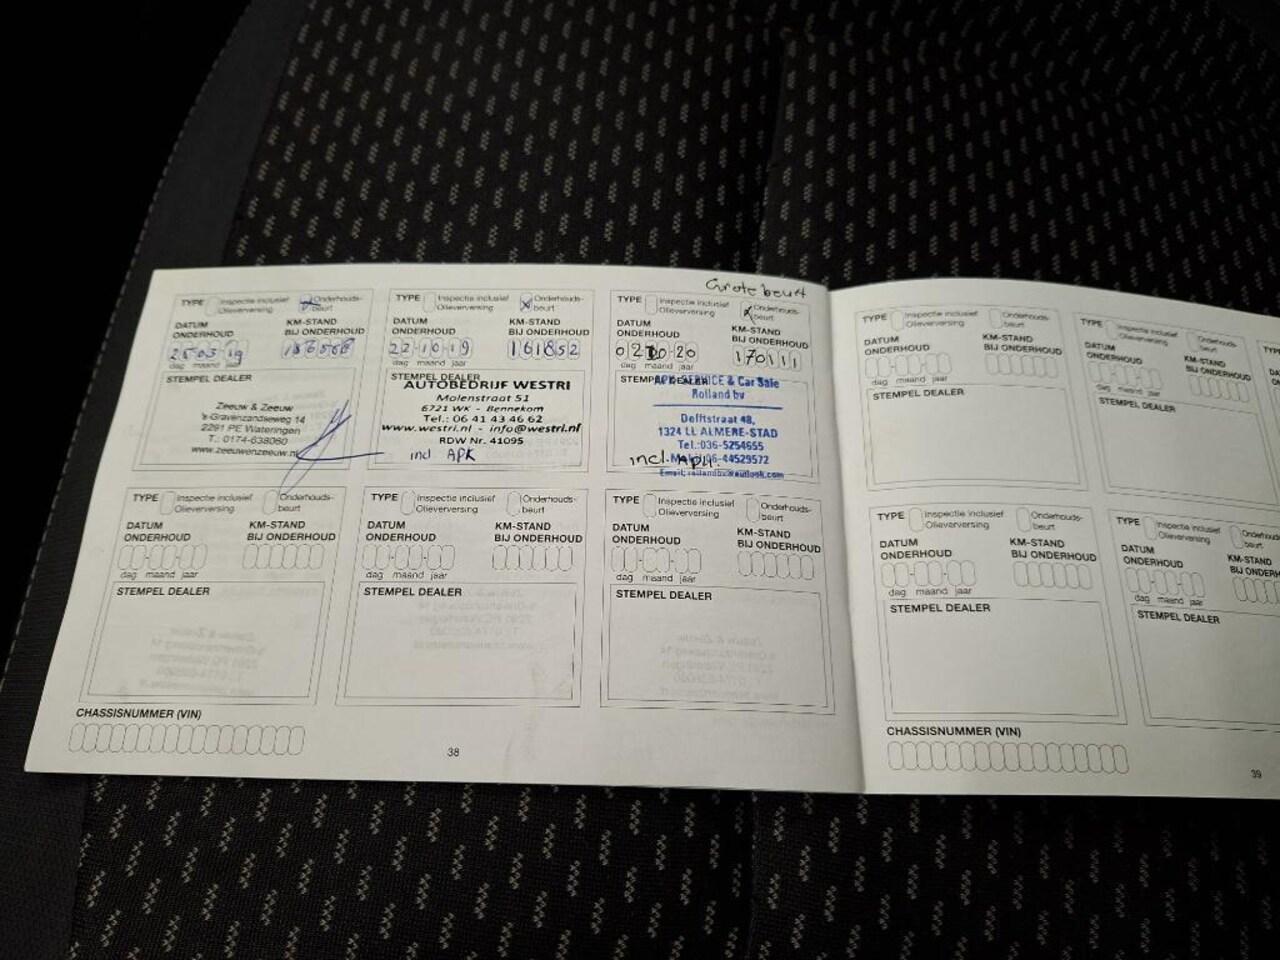 Grote beurt
TYPE Inspectie inclusief Olieverversing Onderhouds-beurt
DATUM ONDERHOUD KM-STAND BIJ ONDERHOUD
25 03 19
dag maand jaar
STEMPEL DEALER
Zeeuw & Zeeuw
's-Gravenzandseweg 14
2291 PE Wateringen
T.: 0174-638060
www.zeeuwenzeeuw.nl
TYPE Inspectie inclusief Olieverversing Onderhouds-beurt
DATUM ONDERHOUD KM-STAND BIJ ONDERHOUD
22-10-19 161852
dag maand jaar
STEMPEL DEALER
AUTOBEDRIJF WESTRI
Molenstraat 51
6721 WK - Bennekom
Tel.: 06 41 43 46 62
www.westri.nl - info@westri.nl
RDW Nr. 41095
incl. APK
TYPE Inspectie inclusief Olieverversing Onderhouds-beurt
DATUM ONDERHOUD KM-STAND BIJ ONDERHOUD
170111
dag maand jaar
STEMPEL DEALER
& Car Sale
Rolland bv
Delftstraat 48,
1324 LL ALMERE-STAD
Tel.:036-5254655
06-44529572
incl.
TYPE Inspectie inclusief Olieverversing Onderhouds-beurt
DATUM ONDERHOUD KM-STAND BIJ ONDERHOUD
dag maand jaar
STEMPEL DEALER
TYPE Inspectie inclusief Olieverversing Onderhouds-beurt
DATUM ONDERHOUD KM-STAND BIJ ONDERHOUD
dag maand jaar
STEMPEL DEALER
TYPE Inspectie inclusief Olieverversing Onderhouds-beurt
DATUM ONDERHOUD KM-STAND BIJ ONDERHOUD
dag maand jaar
STEMPEL DEALER
CHASSISNUMMER (VIN)
38
TYPE Inspectie inclusief Olieverversing Onderhouds-beurt
DATUM ONDERHOUD KM-STAND BIJ ONDERHOUD
dag maand jaar
STEMPEL DEALER
TYPE Inspectie inclusief Olieverversing Onderhouds-beurt
DATUM ONDERHOUD KM-STAND BIJ ONDERHOUD
dag maand jaar
STEMPEL DEALER
TYPE Inspectie inclusief Olieverversing Onderhouds-beurt
DATUM ONDERHOUD KM-STAND BIJ ONDERHOUD
dag maand jaar
STEMPEL DEALER
TYPE Inspectie inclusief Olieverversing
DATUM ONDERHOUD KM-STAND
dag maand jaar
STEMPEL DEALER
CHASSISNUMMER (VIN)
39